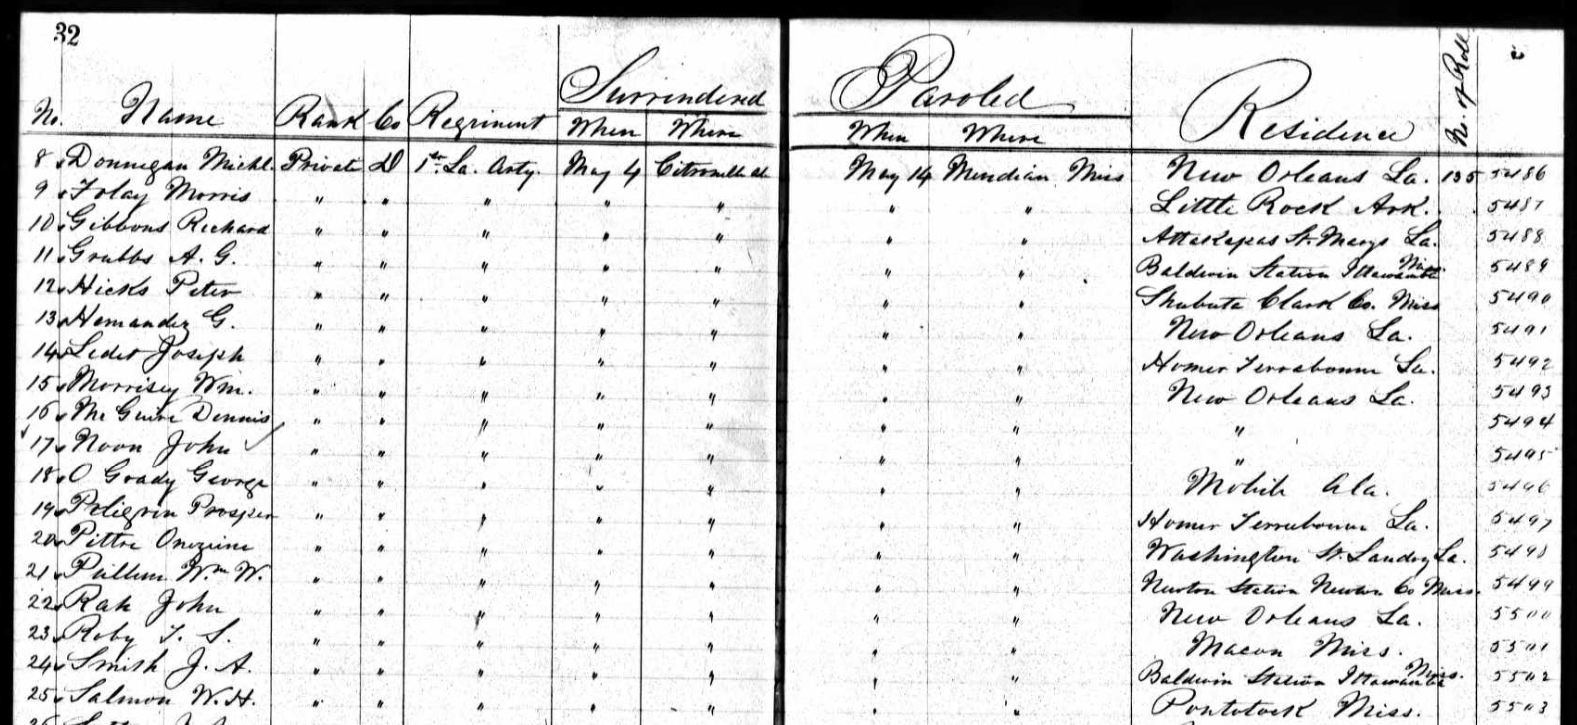 32
Surrendered Paroled No. of Roll
No. Name Rank Co Regiment When Where When Where Residence
8 Donnegan Michl. Private D 1st La. Arty. May 4 Citronelle Al May 14 Meridian Miss New Orleans La. 135 5486
9 Folay Morris " " " " " " " Little Rock Ark. 5487
10 Gibbons Richard " " " " " " " Attakapas St. Marys La. 5488
11 Grubbs A. G. " " " " " " " Baldwin Station Ittawamba Miss 5489
12 Hicks Peter " " " " " " " Shubuta Clark Co. Miss 5490
13 Hernandez G. " " " " " " " New Orleans La. 5491
14 Ledet Joseph " " " " " " " Homer Terrebonne La. 5492
15 Morrisey Wm. " " " " " " " New Orleans La. 5493
16 Mc Guire Dennis " " " " " " " " 5494
17 Noon John " " " " " " " " 5495
18 O Grady George " " " " " " " Mobile Ala. 5496
19 Peligrin Prosper " " " " " " " Homer Terrebonne La. 5497
20 Pittre Onezime " " " " " " " Washington St. Landry La. 5498
21 Pullum Wm W. " " " " " " " Newton Station Newton Co Miss. 5499
22 Rah John " " " " " " " New Orleans La. 5500
23 Roby T. S. " " " " " " " Macon Miss. 5501
24 Smith J. A. " " " " " " " Baldwin Station Ittawamba Miss. 5502
25 Salmon W. H. " " " " " " " Pontotock Miss. 5503